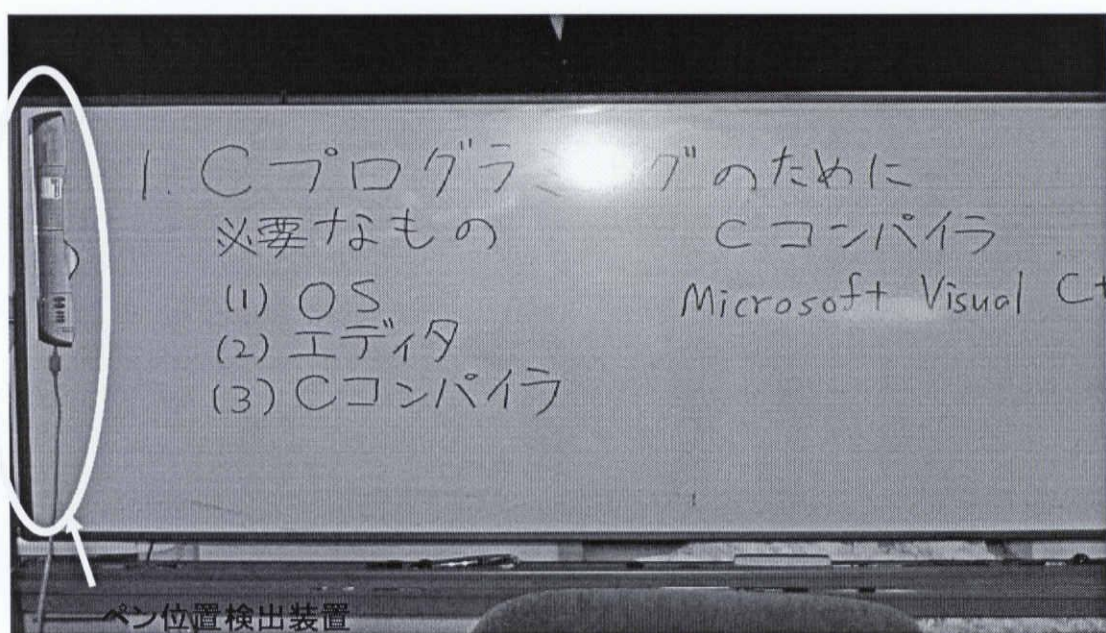 1. Cプログラミングのために
必要なもの
(1) OS
(2) エディタ
(3) Cコンパイラ
Cコンパイラ
Microsoft Visual C+
ペン位置検出装置